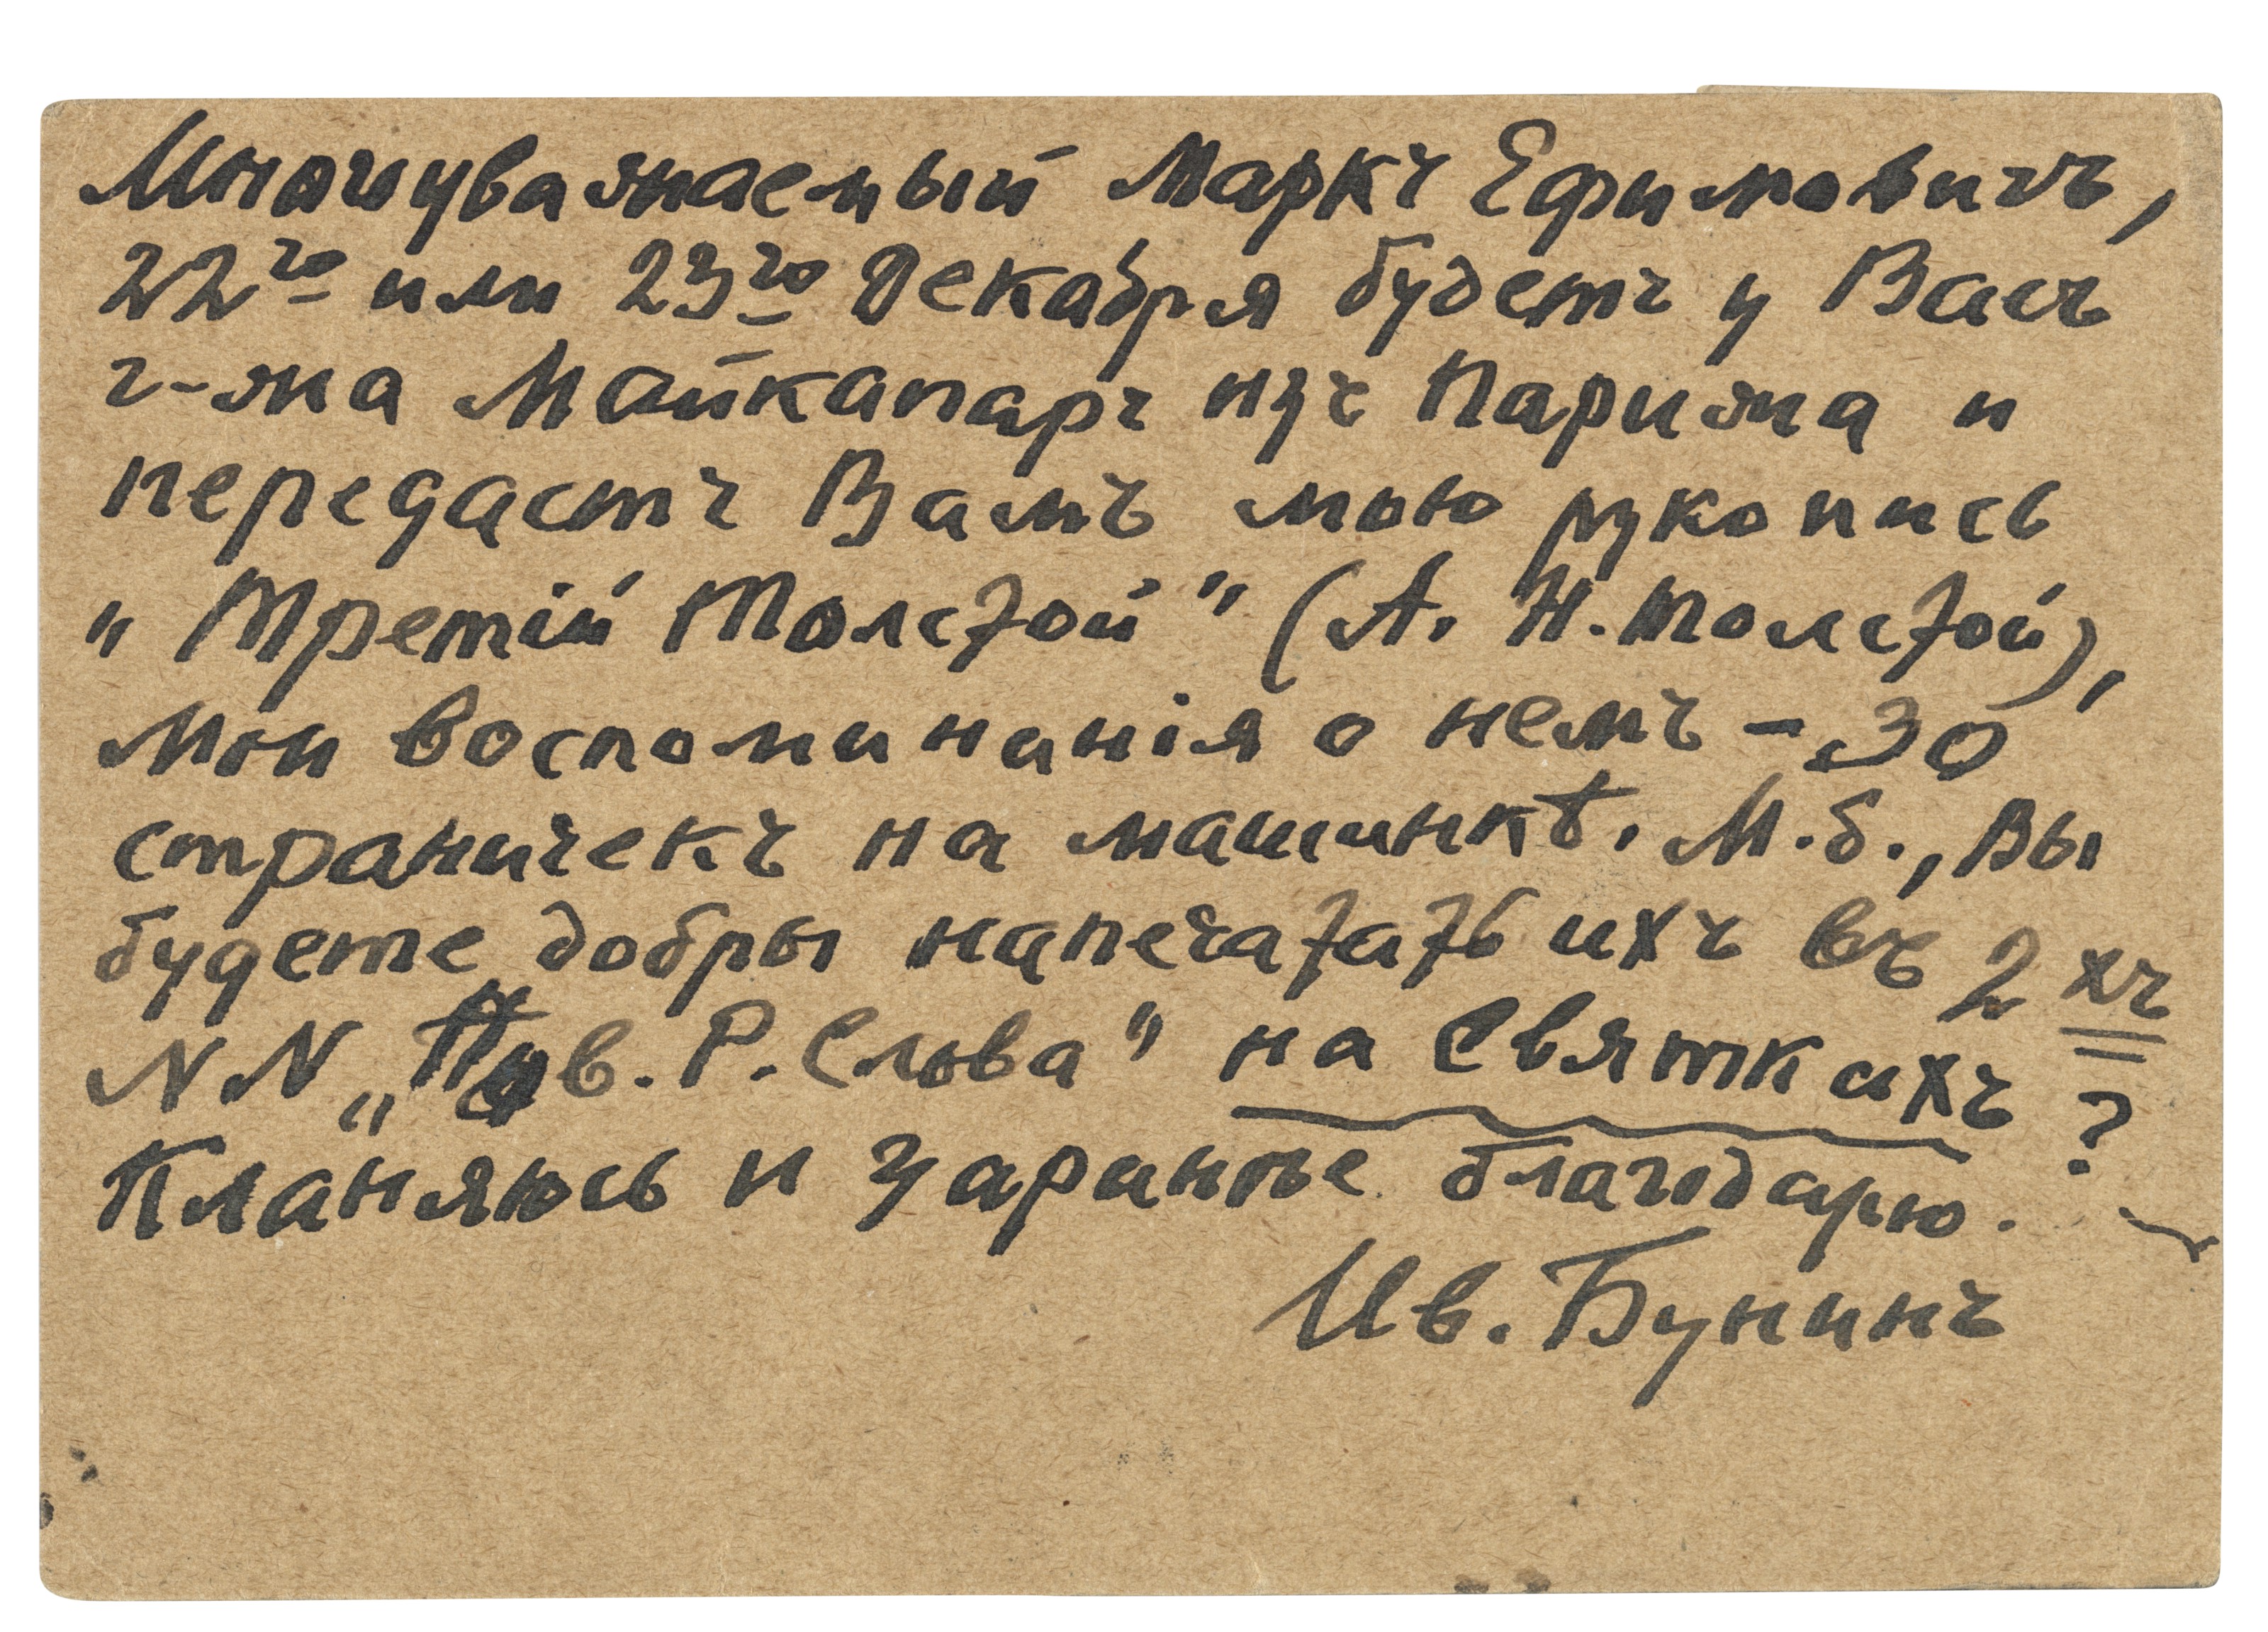 Многоуважаемый Маркъ Ефимовичъ,
22го или 23го Декабря будетъ у Васъ
г-жа Майкапаръ изъ Парижа и
передастъ Вамъ мою рукопись
„Третій Толстой" (А. Н. Толстой),
мои воспоминанія о немъ – 30
страничекъ на машинкѣ. М.б., Вы
будете добры напечатать ихъ въ 2хъ
NN „Нов. Р. Слова" на Святкахъ?
Кланяюсь и заранѣе благодарю.
Ив. Бунинъ